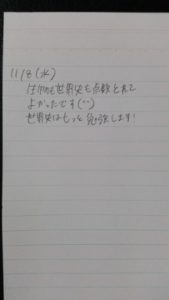 11/8(水)
生物も世界史も点数とれて
よかったです(^^)
世界史はもっと勉強します!